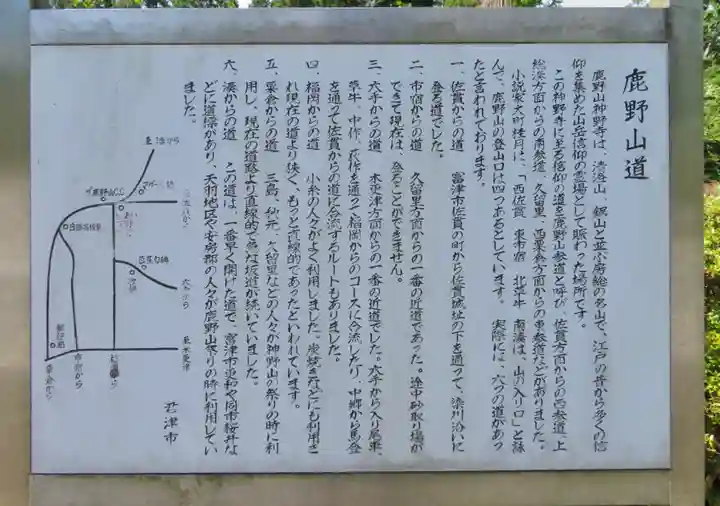 鹿野山道
鹿野山神野寺は、清澄山、鋸山と並ぶ房総の名山で、江戸の昔から多くの信
仰を集めた山岳信仰の霊場として賑わった場所です。
この神野寺に至る信仰の道を鹿野山参道と呼び、佐貫方面からの西参道、上
総湊方面からの南参道、久留里、西粟倉方面からの東参道などがありました。
小説家大町桂月に、「西佐貫、東市宿、北草牛、南湊は、山の入り口」と詠
んで、鹿野山の登山口は四つあるとしています。実際には、六つの道があっ
たと言われております。
一、佐貫からの道 富津市佐貫の町から佐貫城址の下を通って、染川沿いに
登る道でした。
二、市宿からの道 久留里方面からの一番の近道であった。途中砂取り場が
できて現在は、登ることができません。
三、大手からの道 木更津方面からの一番の近道でした。大手から入り尾車、
草牛、中作、萩作を通って福岡からのコースに合流したり、中郷から馬登
を通って佐貫からの道に合流するルートもありました。
四、福岡からの道 小糸の人々がよく利用しました。炭焼きなどにも利用さ
れ現在の道より狭く、もっと直線的であったといわれています。
五、粟倉からの道 三島、秋元、久留里などの人々が神野山の祭りの時に利
用し、現在の道路より直線的で急な坂道が続いていました。
六、湊からの道 この道は、一番早く開けた道で、富津市更和や同市桜井な
どに道標があり、天羽地区や安房郡の人々が鹿野山祭りの時に利用してい
ました。
君津市
鹿野山C.C
から
大手から
木更津
市宿から
粟倉から